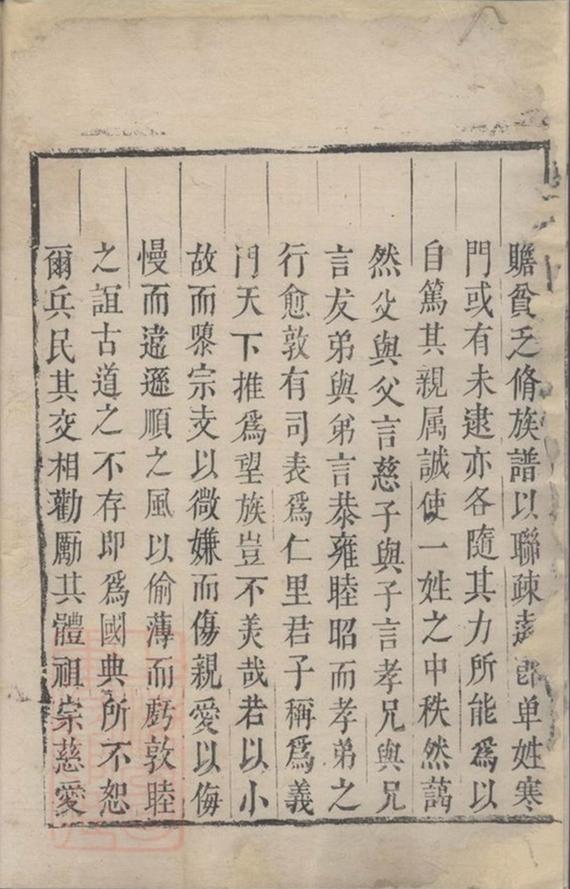 贍貧乏脩族譜以聯疎遠即单姓寒
門或有未逮亦各隨其力所能爲以
自篤其親属誠使一姓之中秩然藹
然父與父言慈子與子言孝兄與兄
言友弟與弟言恭雍睦昭而孝弟之
行愈敦有司表爲仁里君子稱爲義
門天下推爲望族豈不美哉若以小
故而隳宗支以微嫌而傷親愛以侮
慢而違遜順之風以偷薄而虧敦睦
之誼古道之不存即爲國典所不恕
爾兵民其交相勸勵其體祖宗慈愛